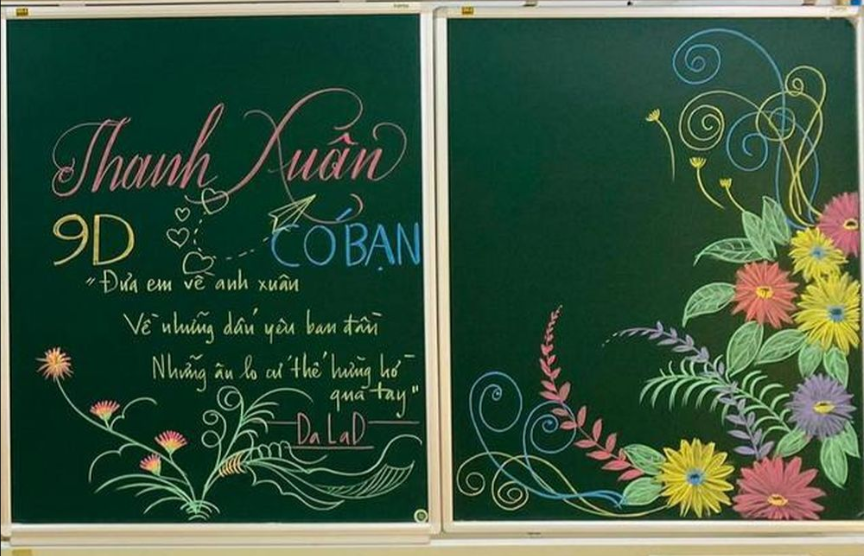 Thanh Xuân
9D CÓ BẠN
"Đưa em về anh xuân
Về những dấu yêu ban đầu
Những âu lo cứ thế hững hờ
qua tay"
DaLaD